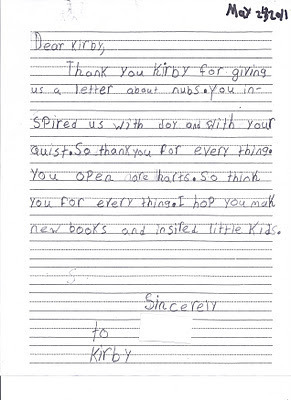 May 24 2011
Dear Kirby,
Thank you Kirby for giving
us a letter about nubs. You in-
spired us with doy and with your
quist. So thankyou for every thing.
You open harts. So think
you for every thing. I hop you mak
new books and insired little kids.
S
Sincerely
to
Kirby